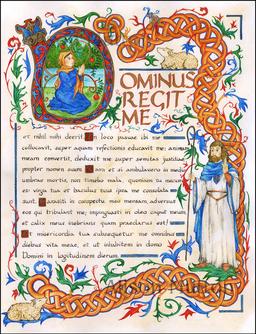 DOMINUS
REGIT
ME
et nihil mihi deerit: In loco pascue ibi me
collocavit, super aquam refectionis educavit me; animam
meam convertit, deduxit me super semitas justitiae
propter nomen suum. Nam et si ambulavero in medio
umbrae mortis, non timebo mala, quoniam tu mecum
es: virga tua et baculus tuus ipsa me consolata
sunt. Parasti in conspectu meo mensam adversus
eos qui tribulant me; impinguasti in oleo caput meum
et calix meus inebrians quam praeclarus est!
Et misericordia tua subsequetur me omnibus
diebus vitae meae, et ut inhabitem in domo
Domini in logitudinem dierum.